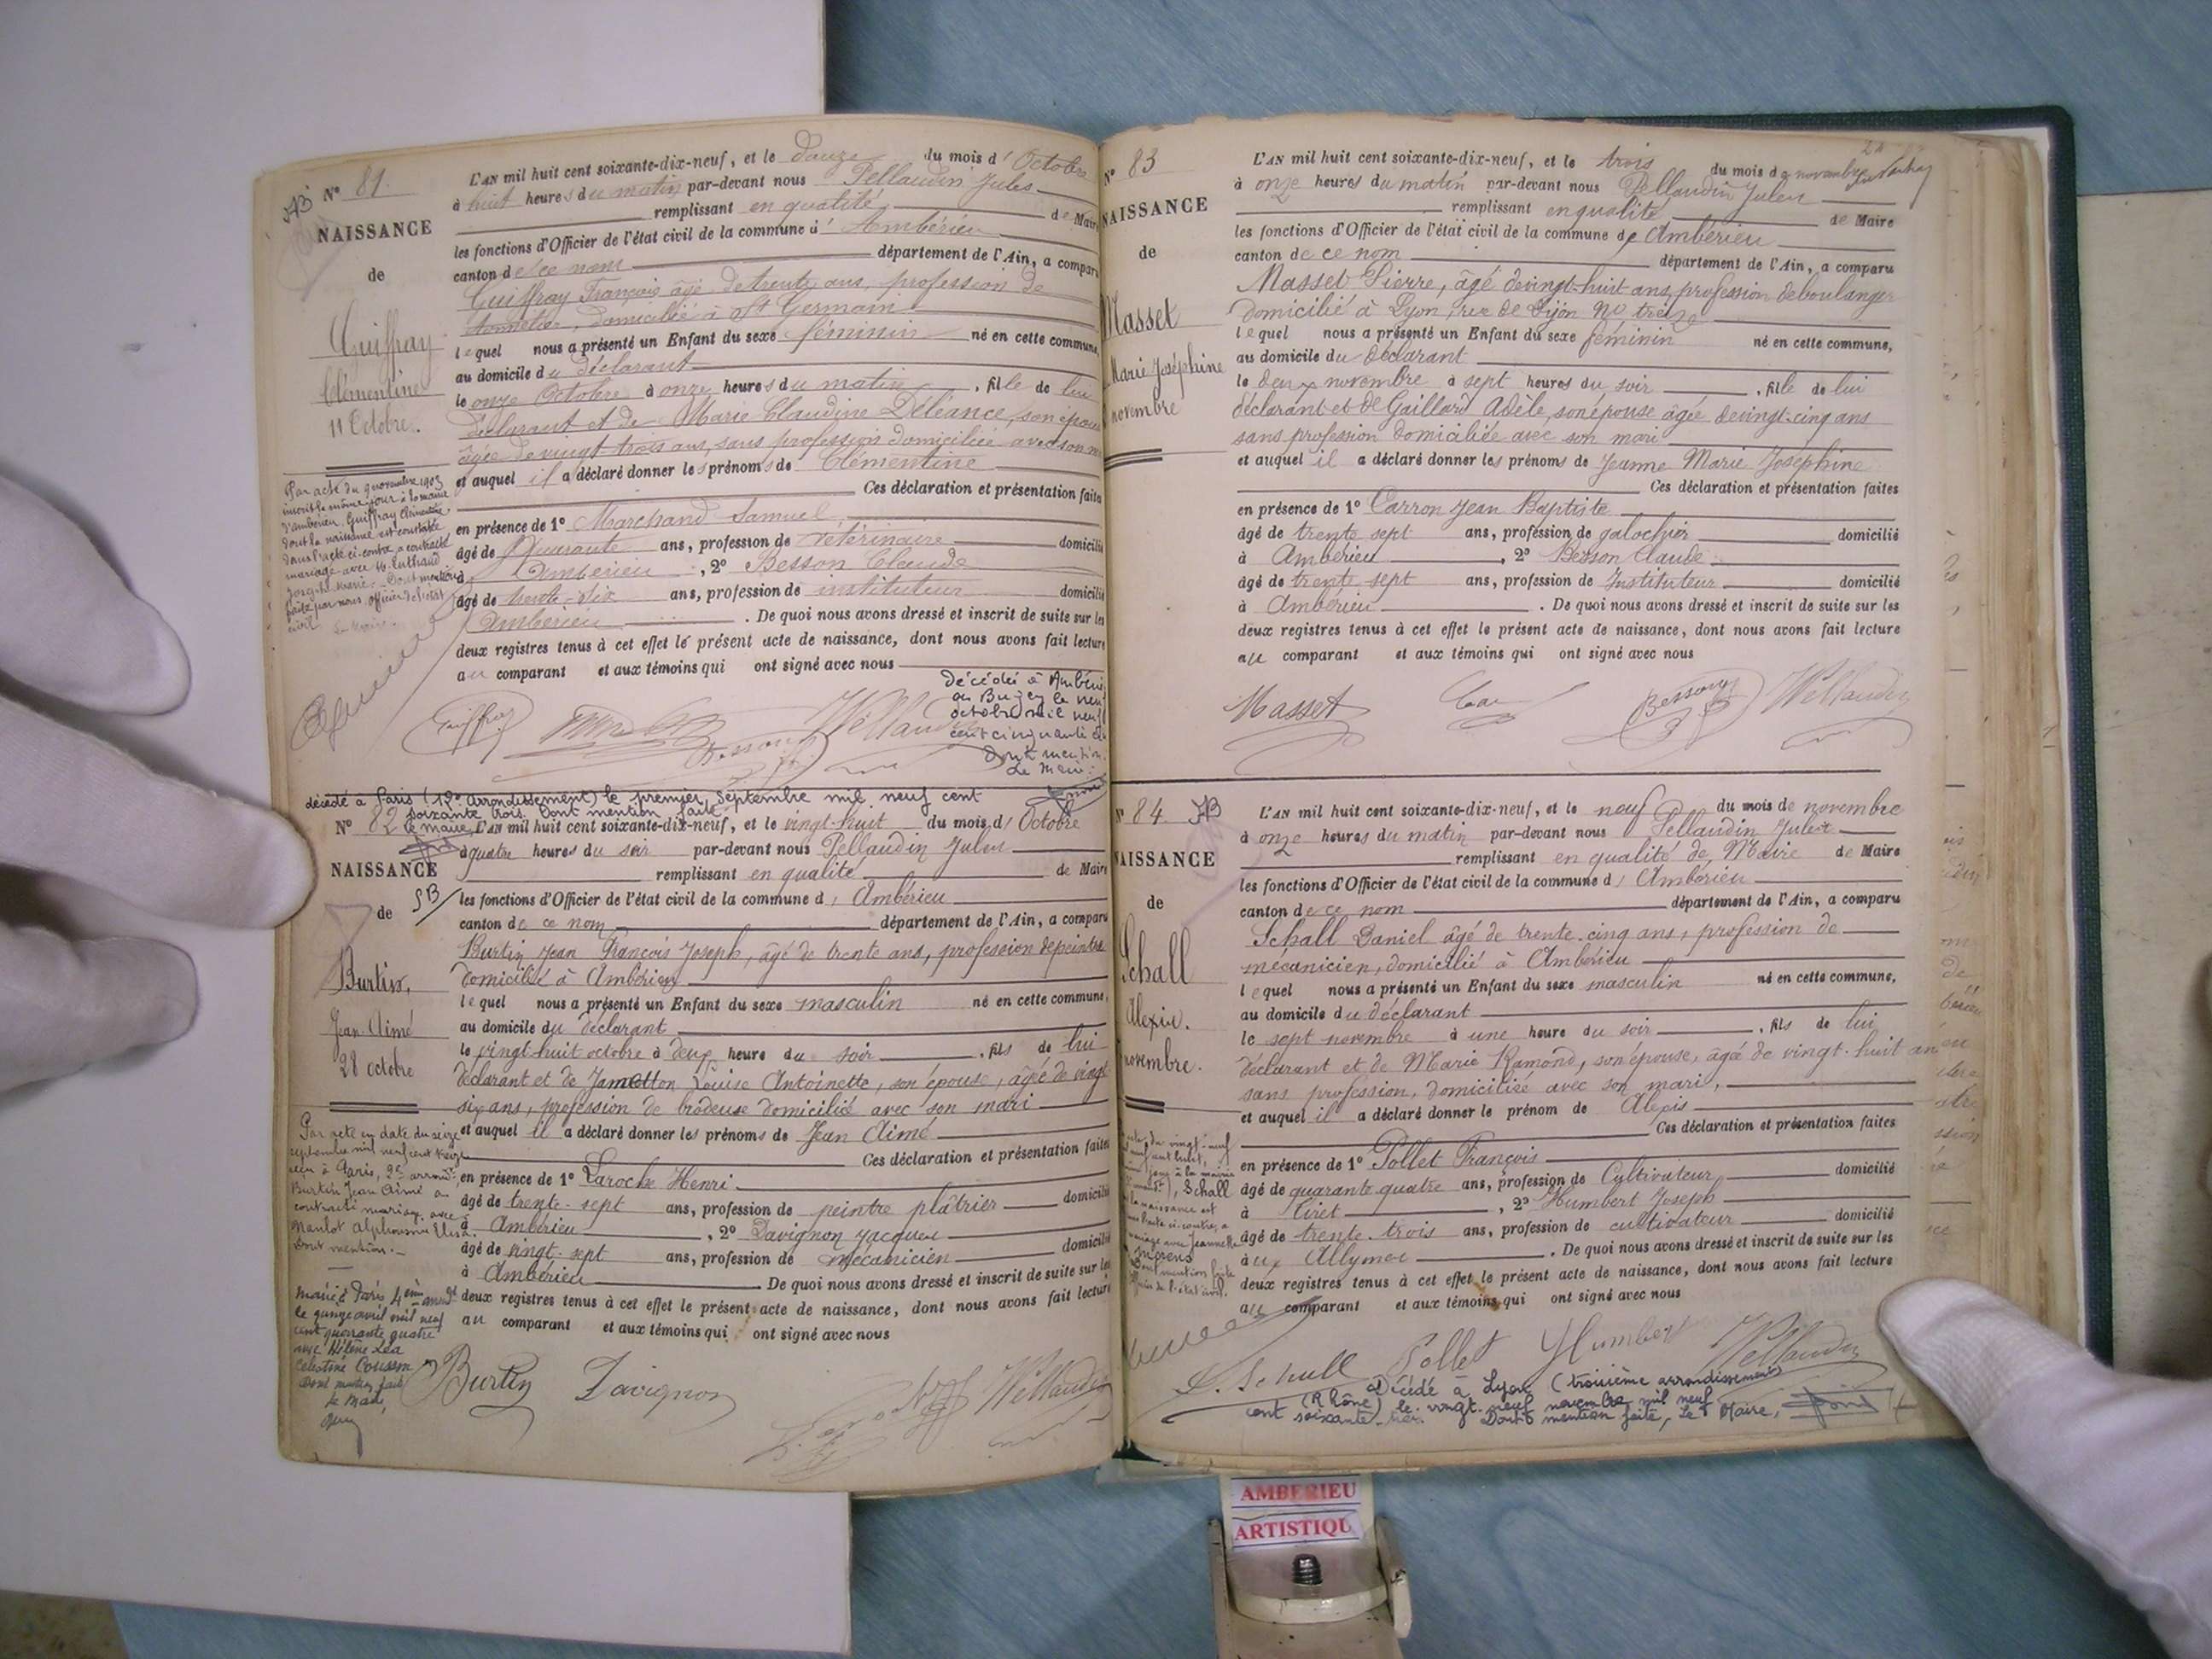 N° 81.
NAISSANCE
de
Guiffray
Clémentine
11 Octobre.
L'AN mil huit cent soixante-dix-neuf, et le douze du mois d'Octobre
à huit heures du matin par-devant nous Pellaudin Jules
remplissant en qualité de Maire
les fonctions d'Officier de l'état civil de la commune d' Ambérieu
canton de ce nom département de l'Ain, a comparu
Guiffray François âgé de trente ans, profession de
domicilié à St Germain
lequel nous a présenté un Enfant du sexe féminin né en cette commune,
au domicile du déclarant
le onze Octobre à onze heures du matin, fille de lui
déclarant et de Marie Claudine Déléance, son épouse
âgée de vingt-trois ans, sans profession domiciliée avec son
et auquel il a déclaré donner les prénoms de Clémentine
Ces déclaration et présentation faites
en présence de 1° Marchand Samuel
âgé de Quarante ans, profession de vétérinaire domicilié
à Ambérieu, 2° Besson Claude
âgé de ans, profession de instituteur domicilié
Ambérieu. De quoi nous avons dressé et inscrit de suite sur les
deux registres tenus à cet effet le présent acte de naissance, dont nous avons fait lecture
au comparant et aux témoins qui ont signé avec nous
Par acte du 9 novembre 1903
inscrit le même jour à la mairie
d'Ambérieu, Guiffray Clémentine
dont la naissance est constatée
dans l'acte ci-contre a contracté
mariage avec M.
Joseph Marie. Dont mention
faite par nous officier de l'état
civil
Le Maire.
Décédée à Ambérieu
en Bugey le neuf
octobre mil neuf
cent cinquante
Dont mention.
Le Maire:
décédé à Paris (12e arrondissement) le premier Septembre mil neuf cent
soixante trois. Dont mention faite
le maire,
N° 82
NAISSANCE
de
Burtin,
Jean-Aimé
28 octobre
L'AN mil huit cent soixante-dix-neuf, et le vingt-huit du mois d'Octobre
à quatre heures du soir par-devant nous Pellaudin Jules
remplissant en qualité de Maire
les fonctions d'Officier de l'état civil de la commune d' Ambérieu
canton de ce nom département de l'Ain, a comparu
Burtin Jean François Joseph, âgé de trente ans, profession de peintre
domicilié à Ambérieu
lequel nous a présenté un Enfant du sexe masculin né en cette commune,
au domicile du déclarant
le vingt-huit octobre à deux heure du soir, fils de lui
déclarant et de Jametton Louise Antoinette, son épouse, âgée de vingt
six ans, profession de brodeuse domicilié avec son mari
et auquel il a déclaré donner les prénoms de Jean Aimé
Ces déclaration et présentation faites
en présence de 1° Laroche Henri
âgé de trente-sept ans, profession de peintre plâtrier domicilié
à Ambérieu, 2° Davignon Jacques
âgé de vingt-sept ans, profession de mécanicien domicilié
à Ambérieu De quoi nous avons dressé et inscrit de suite sur les
deux registres tenus à cet effet le présent acte de naissance, dont nous avons fait lecture
au comparant et aux témoins qui ont signé avec nous
Par acte en date du seize
septembre mil neuf cent treize
à Paris, 2e arrond.
Burtin Jean Aimé a
contracté mariage avec
Alphonsine Elisa.
Dont mention.
marié à Paris 4ème arrondt
le quinze avril mil neuf
cent quarante quatre
avec Hélène Léa
Célestine Cousson
Dont mention faite
le Maire,
Burtin Davignon
N° 83
NAISSANCE
de
Masset
Marie Joséphine
novembre
L'AN mil huit cent soixante-dix-neuf, et le trois du mois de novembre
à onze heures du matin par-devant nous Pellaudin Jules
remplissant en qualité de Maire
les fonctions d'Officier de l'état civil de la commune de Ambérieu
canton de ce nom département de l'Ain, a comparu
Masset Pierre, âgé de vingt-huit ans, profession de boulanger
domicilié à Lyon, rue de Dijon No treize
lequel nous a présenté un Enfant du sexe féminin né en cette commune,
au domicile du déclarant
le deux novembre à sept heures du soir, fille de lui
déclarant et de Gaillard Adèle, son épouse âgée de vingt-cinq ans
sans profession domiciliée avec son mari
et auquel il a déclaré donner les prénoms de Jeanne Marie Joséphine
Ces déclaration et présentation faites
en présence de 1° Carron Jean Baptiste
âgé de trente sept ans, profession de galochier domicilié
à Ambérieu, 2° Besson Claude
âgé de trente sept ans, profession de Instituteur domicilié
à Ambérieu. De quoi nous avons dressé et inscrit de suite sur les
deux registres tenus à cet effet le présent acte de naissance, dont nous avons fait lecture
au comparant et aux témoins qui ont signé avec nous
Masset Besson Pellaudin
N° 84
NAISSANCE
de
Schall
Alexis.
novembre.
L'AN mil huit cent soixante-dix-neuf, et le neuf du mois de novembre
à onze heures du matin par-devant nous Pellaudin Jules
remplissant en qualité de Maire de Maire
les fonctions d'Officier de l'état civil de la commune d' Ambérieu
canton de ce nom département de l'Ain, a comparu
Schall Daniel âgé de trente-cinq ans, profession de
mécanicien, domicilié à Ambérieu
lequel nous a présenté un Enfant du sexe masculin né en cette commune,
au domicile du déclarant
le sept novembre à une heure du soir, fils de lui
déclarant et de Marie Ramond, son épouse, âgée de vingt-huit an
sans profession, domiciliée avec son mari,
et auquel il a déclaré donner le prénom de Alexis
Ces déclaration et présentation faites
en présence de 1° Pollet François
âgé de quarante quatre ans, profession de Cultivateur domicilié
à Tiret, 2° Humbert Joseph
âgé de trente-trois ans, profession de cultivateur domicilié
à aux Allymes. De quoi nous avons dressé et inscrit de suite sur les
deux registres tenus à cet effet le présent acte de naissance, dont nous avons fait lecture
au comparant et aux témoins qui ont signé avec nous
D. Schall Pollet Humbert Pellaudin
décédé à Lyon (troisième arrondissement)
(Rhône) le vingt-neuf novembre mil neuf
cent soixante. Dont mention faite, Le Maire,
AMBERIEU
ARTISTIQU